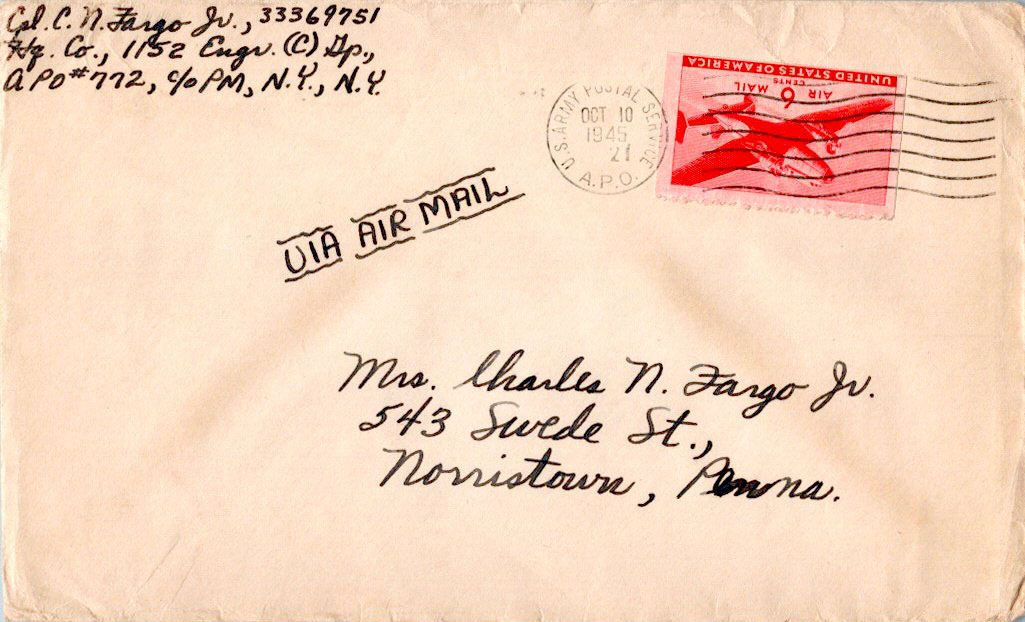 Cpl. C. N. Fargo Jr., 33369751
Hq. Co., 1152 Engr. (C) Gp.,
APO #772, c/o PM, N.Y., N.Y.
U.S. ARMY POSTAL SERVICE
OCT 10
1945
21
A.P.O.
UNITED STATES OF AMERICA
CENTS
AIR 6 MAIL
VIA AIR MAIL
Mrs. Charles N. Fargo Jr.
543 Swede St.,
Norristown, Penna.